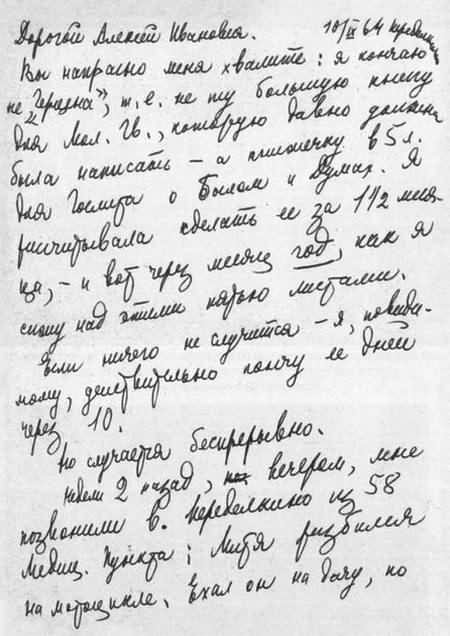 10/IX 64 Переделкино
Дорогой Алексей Иванович.
Вы напрасно меня хвалите: я кончаю
не „Герцена”, т. е. не ту большую книгу
для Мол. Гв., которую давно должна
была написать – а книжечку в 5 л.
для Гослита о Былом и Думах. Я
рассчитывала сделать ее за 1 1/2 меся-
ца, – и вот через месяц год, как я
сижу над этими пятью листами.
Если ничего не случится – я, повиди-
мому, действительно кончу ее дней
через 10.
Но случается беспрерывно.
Недели 2 назад, вечером, мне
позвонили в Переделкино из 58
Медиц. Пункта: Митя разбился
на мотоцикле. Ехал он на дачу, но